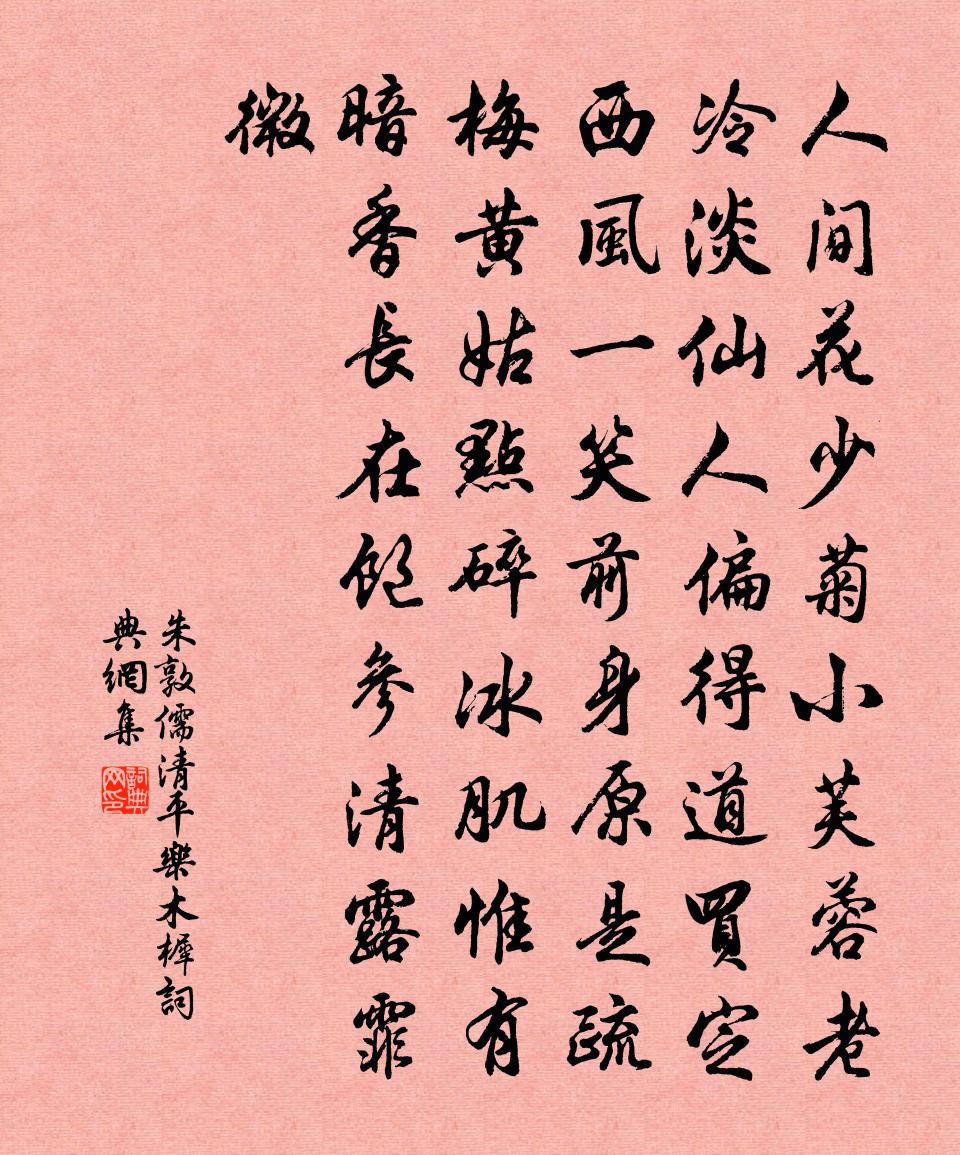 人間花少菊小芙蓉老
冷淡仙人偏得道買定
西風一笑前身原是疏
梅黃姑點碎冰肌惟有
暗香長在飽參清露霏
微
朱敦儒清平樂木樨詞
典網集
詞典
网印